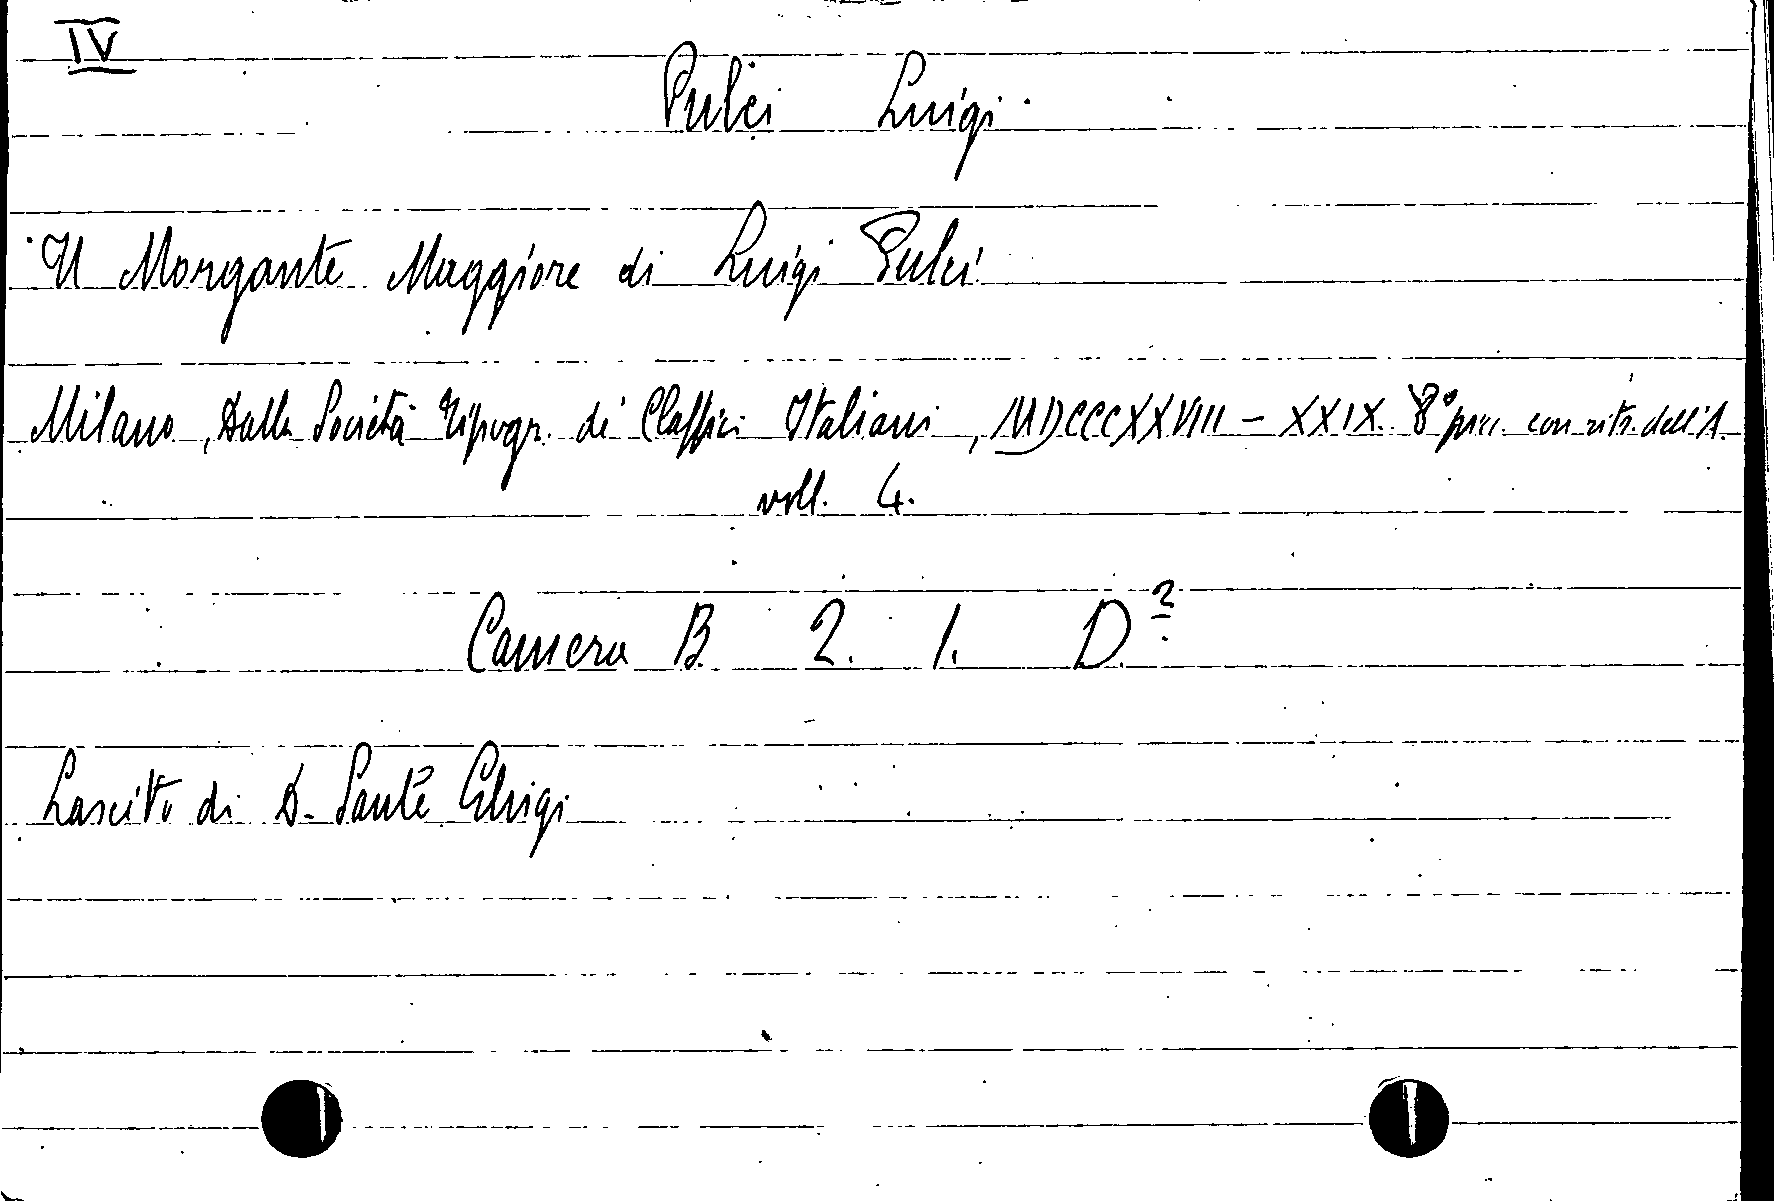 IV
Pulci Luigi.
Il Morgante Maggiore di Luigi Pulci
Milano, Dalla Società Tipogr. de' Classici Italiani, MDCCCXXVIII - XXIX. 8° picc. con ritr. dell'A.
voll. 4.
Camera B. 2. 1. D.2
Lascito di D. Sante Ghigi